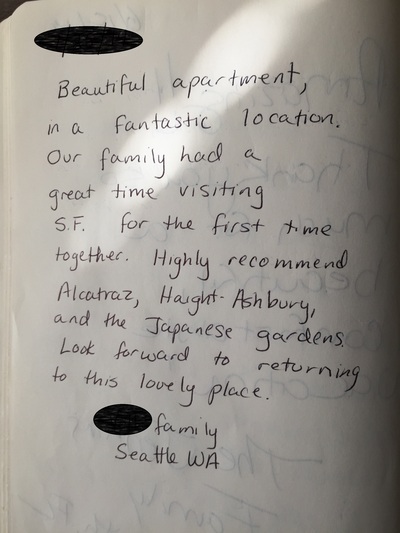 Beautiful apartment,
in a fantastic location.
Our family had a
great time visiting
S.F. for the first time
together. Highly recommend
Alcatraz, Haight-Ashbury,
and the Japanese gardens.
Look forward to returning
to this lovely place.
family
Seattle WA